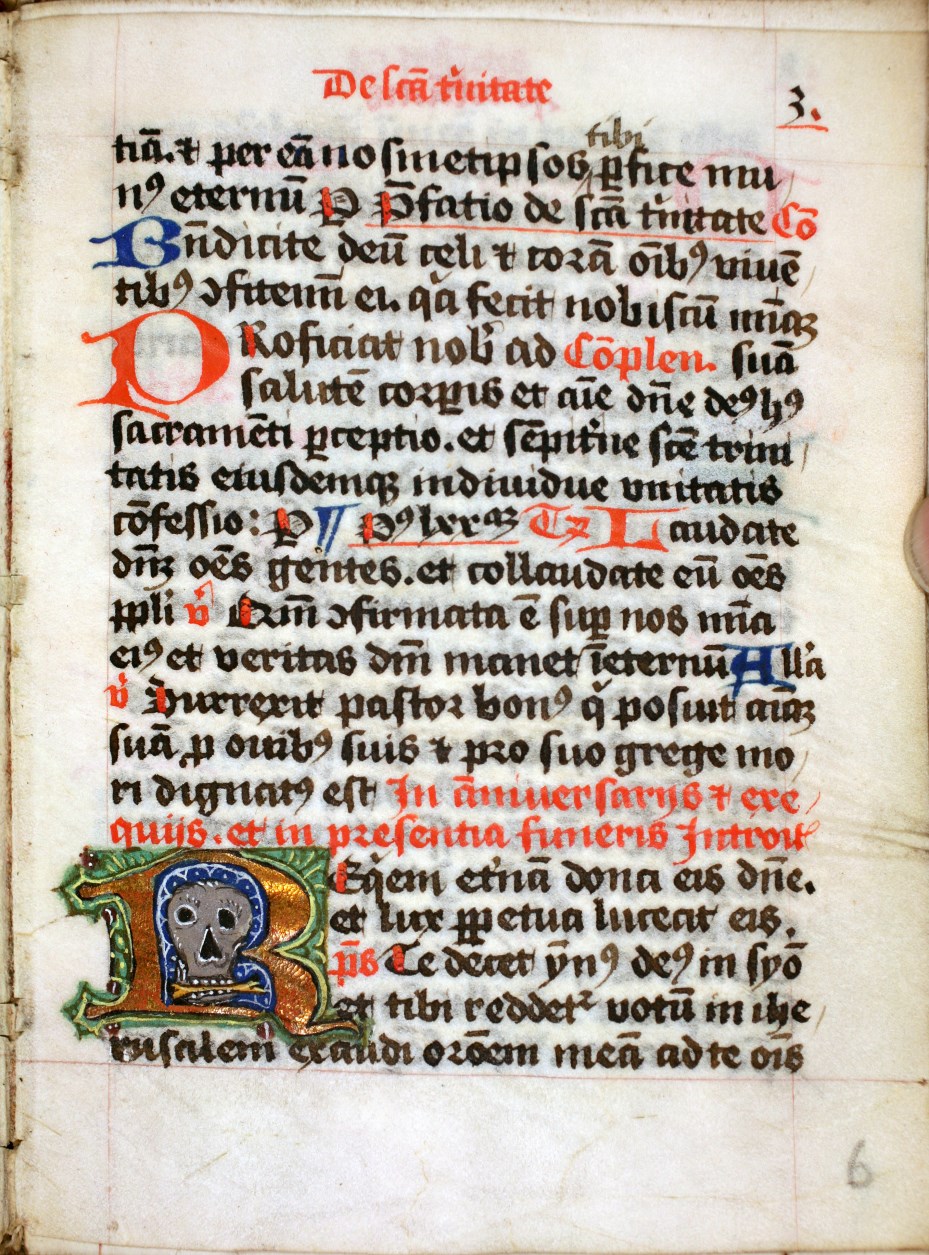 De scā t'nitate
3.
tibi
tiā. ⁊ per eā nosmetipsos ꝑfice mu
nꝰ eternū P P̄fatio de scā t'nitate Cō
Bn̄dicite deū celi ⁊ corā oīb⁹ viuē
tib⁹ ꝯfitemī ei. q̄a fecit nobiscū mīaꝫ
PRoficiat nob̄ ad Cōplen. suā
salutē corꝑis et aīe dn̄e de⁹ h⁹
sacramēti ꝑceptio. et sēpit'ne scē trini
tatis eiusdemqꝫ indiuidue vnitatis
cōfessio: P ¶ P⁹ lxxᵃᵐ Tr̄ Laudate
dn̄ꝫ oēs gentes. et collaudate eū oēs
ppl'i v̓ Qm̄ ꝯfirmata ē suꝑ nos mīa
ei⁹ et veritas dn̄i manet īeternū All'a
v̓ Surrexit pastor bon⁹ q̓ posuit aīaꝫ
suā ꝓ ouib⁹ suis ⁊ pro suo grege mo
ri dignat⁹ est In āniuersarijs ⁊ exe
quijs. et in presentia funeris Introit'
REq̓em et'nā dona eis dn̄e.
et lux ꝑpetua luceat eis.
p̄s Te decet ẏn⁹ de⁹ in syō
et tibi reddet᷑ votū in ihe
rusalem exaudi orōem meā ad te oīs
6